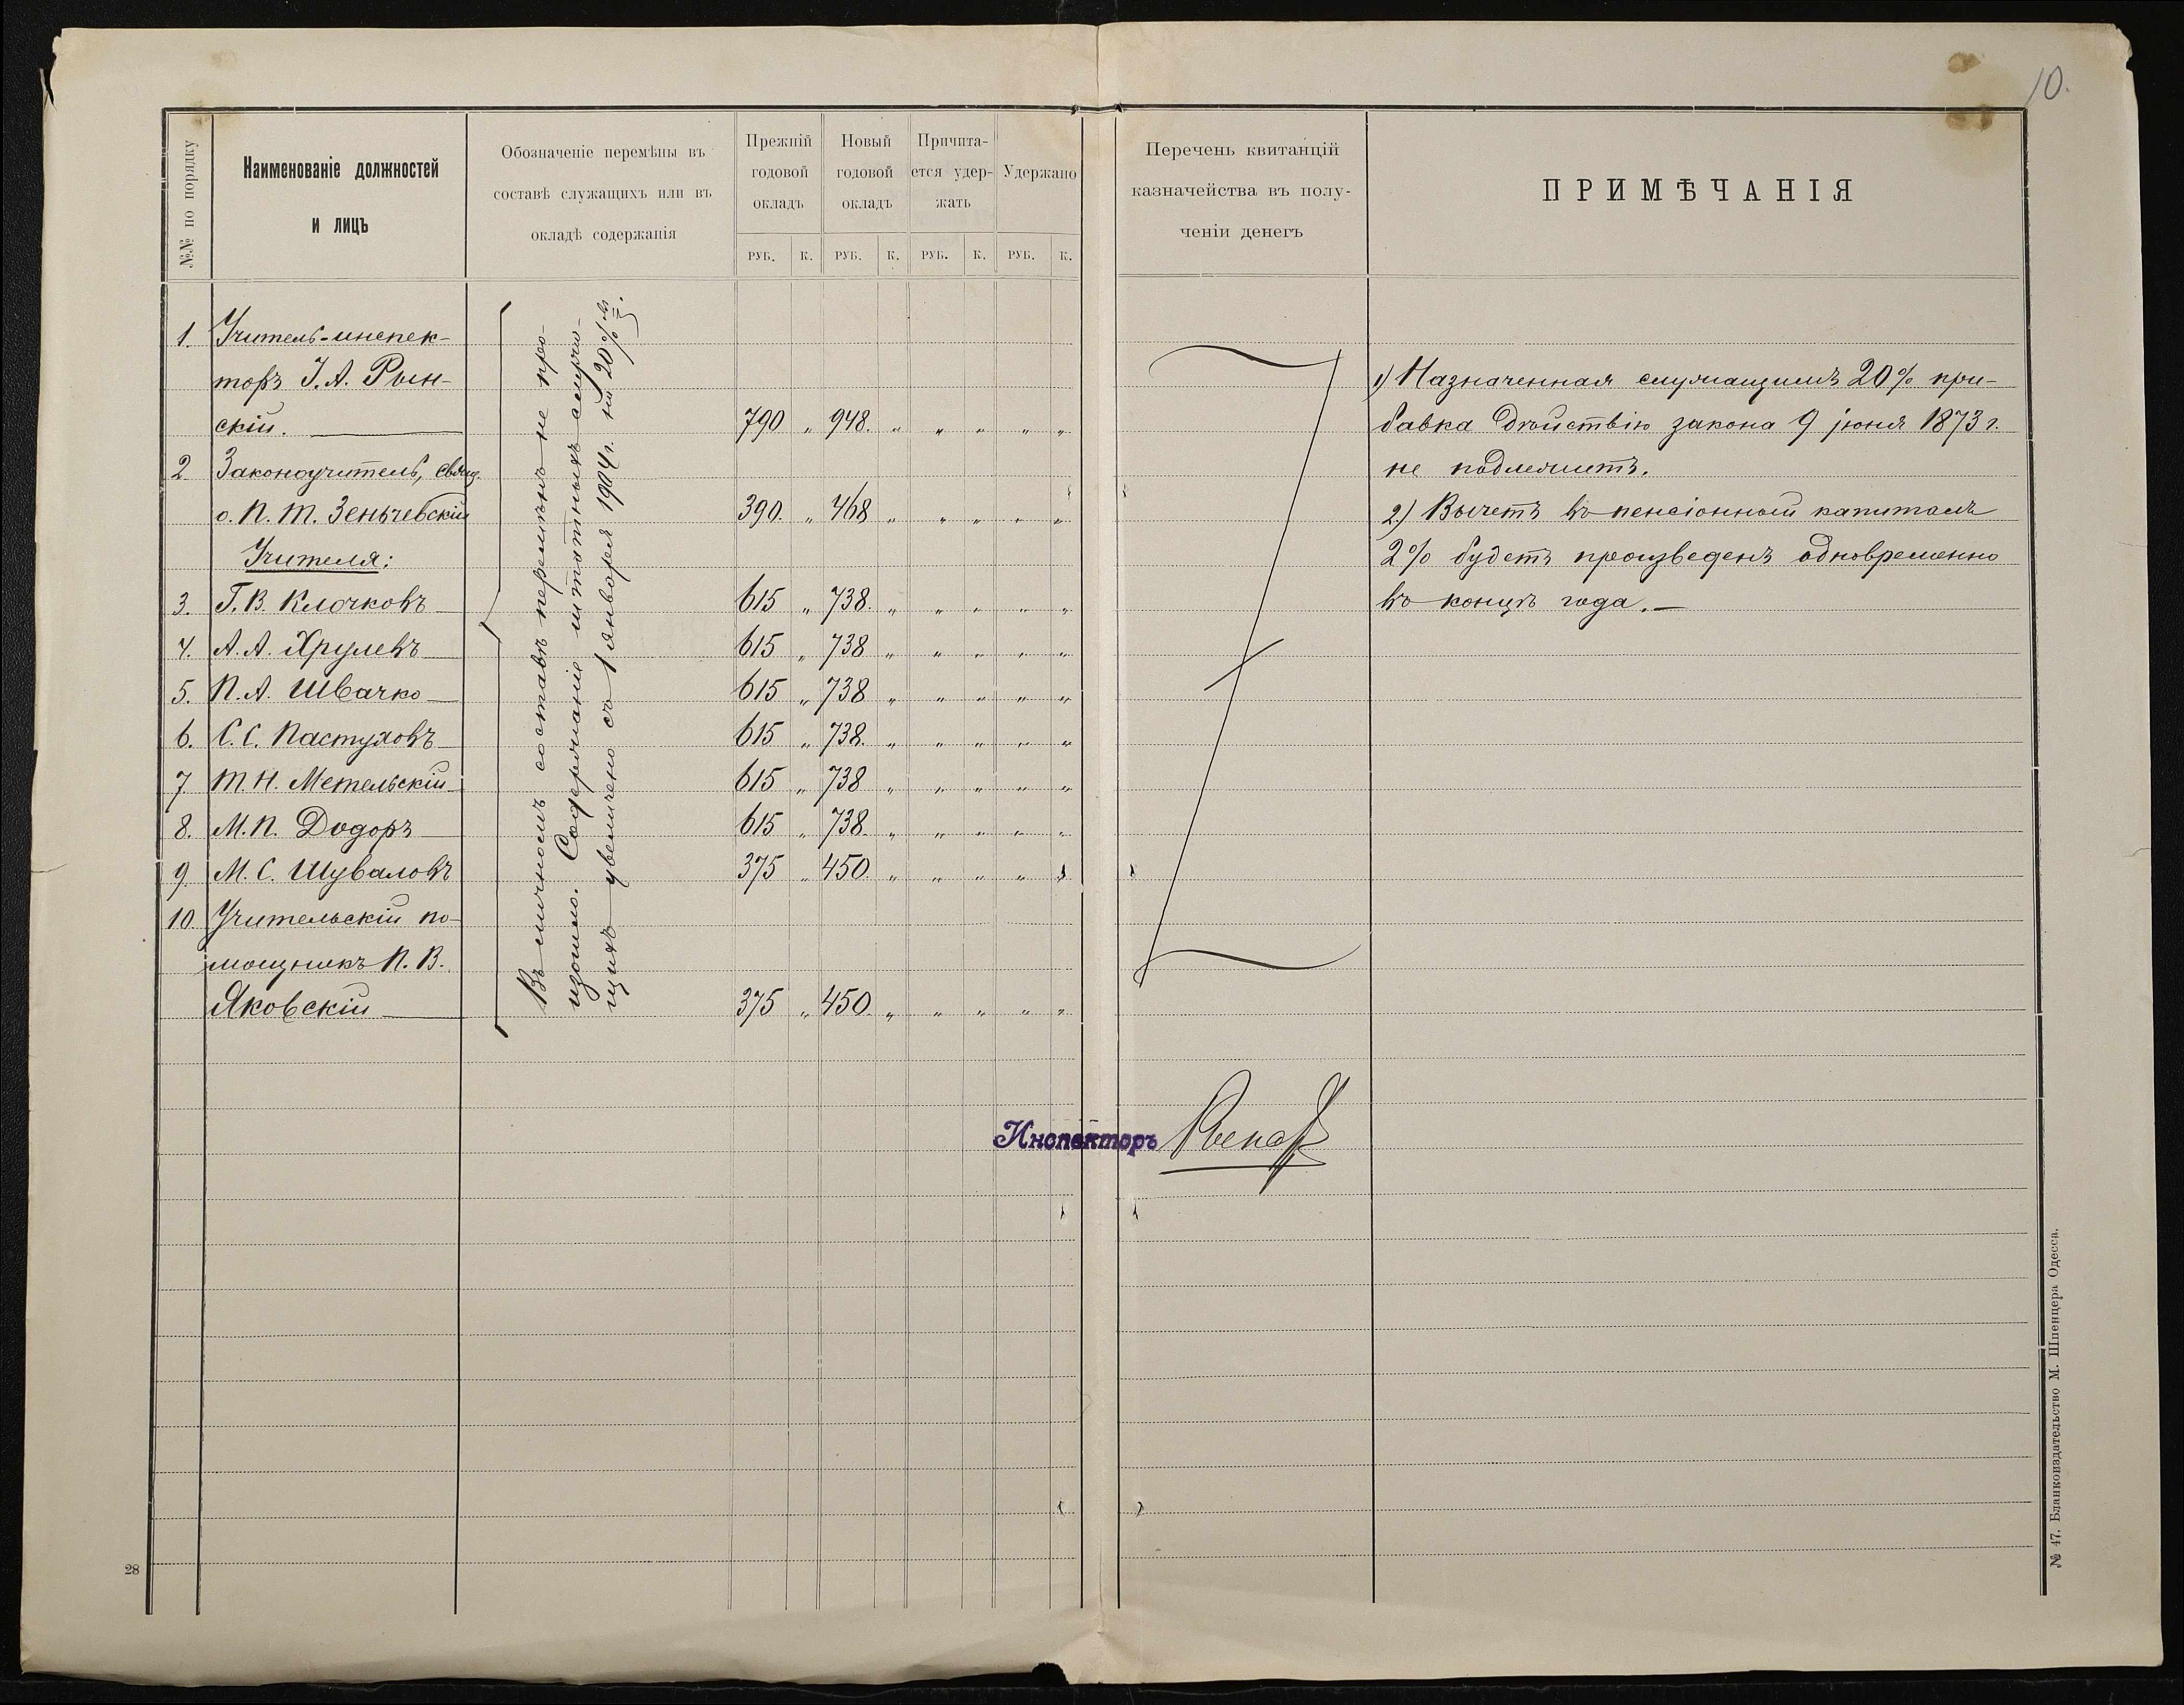 10.
№№ по порядку
Наименованіе должностей
и лицъ
Обозначеніе перемѣны въ
составѣ служащихъ или въ
окладѣ содержанія
Прежній
годовой
окладъ
Новый
годовой
окладъ
Причита-
ется удер-
жать
Удержано
РУБ. К. РУБ. К. РУБ. К. РУБ. К.
Перечень квитанцій
казначейства въ полу-
ченіи денегъ
ПРИМѢЧАНІЯ
1. Учитель-инспек-
торъ І. А. Рын-
скій. 790 „ 948. „ „ „ „ „
2. Законоучитель, свящ.
о. П. Т. Зеньчевскій 390. „ 468 „ „ „ „ „
Учителя:
3. Г. В. Клочковъ 615 „ 738. „ „ „ „ „
4. А. А. Хрулевъ 615 „ 738 „ „ „ „ „
5. П. А. Швачко 615 „ 738 „ „ „ „ „
6. С. С. Пастуховъ 615 „ 738. „ „ „ „ „
7 Т. Н. Метельскій 615 „ 738 „ „ „ „ „
8. М. П. Додоръ 615 „ 738. „ „ „ „ „
9. М. С. Шуваловъ 375 „ 450. „ „ „ „ „
10. Учительскій по-
мощникъ П. В.
Яковскій 375 „ 450. „ „ „ „ „
Въ личномъ составѣ перемѣнъ не про-
изошло. Содержаніе штатныхъ служа-
щихъ увеличено съ 1 января 1904 г. на 20%
1) Назначенная служащимъ 20% при-
бавка дѣйствію закона 9 іюня 1873 г.
не подлежитъ.
2.) Вычетъ въ пенсіонный капиталъ
2% будетъ произведенъ одновременно
въ концѣ года.—
Инспекторъ
28
№ 47. Бланкоиздательство М. Шпенцера Одесса.